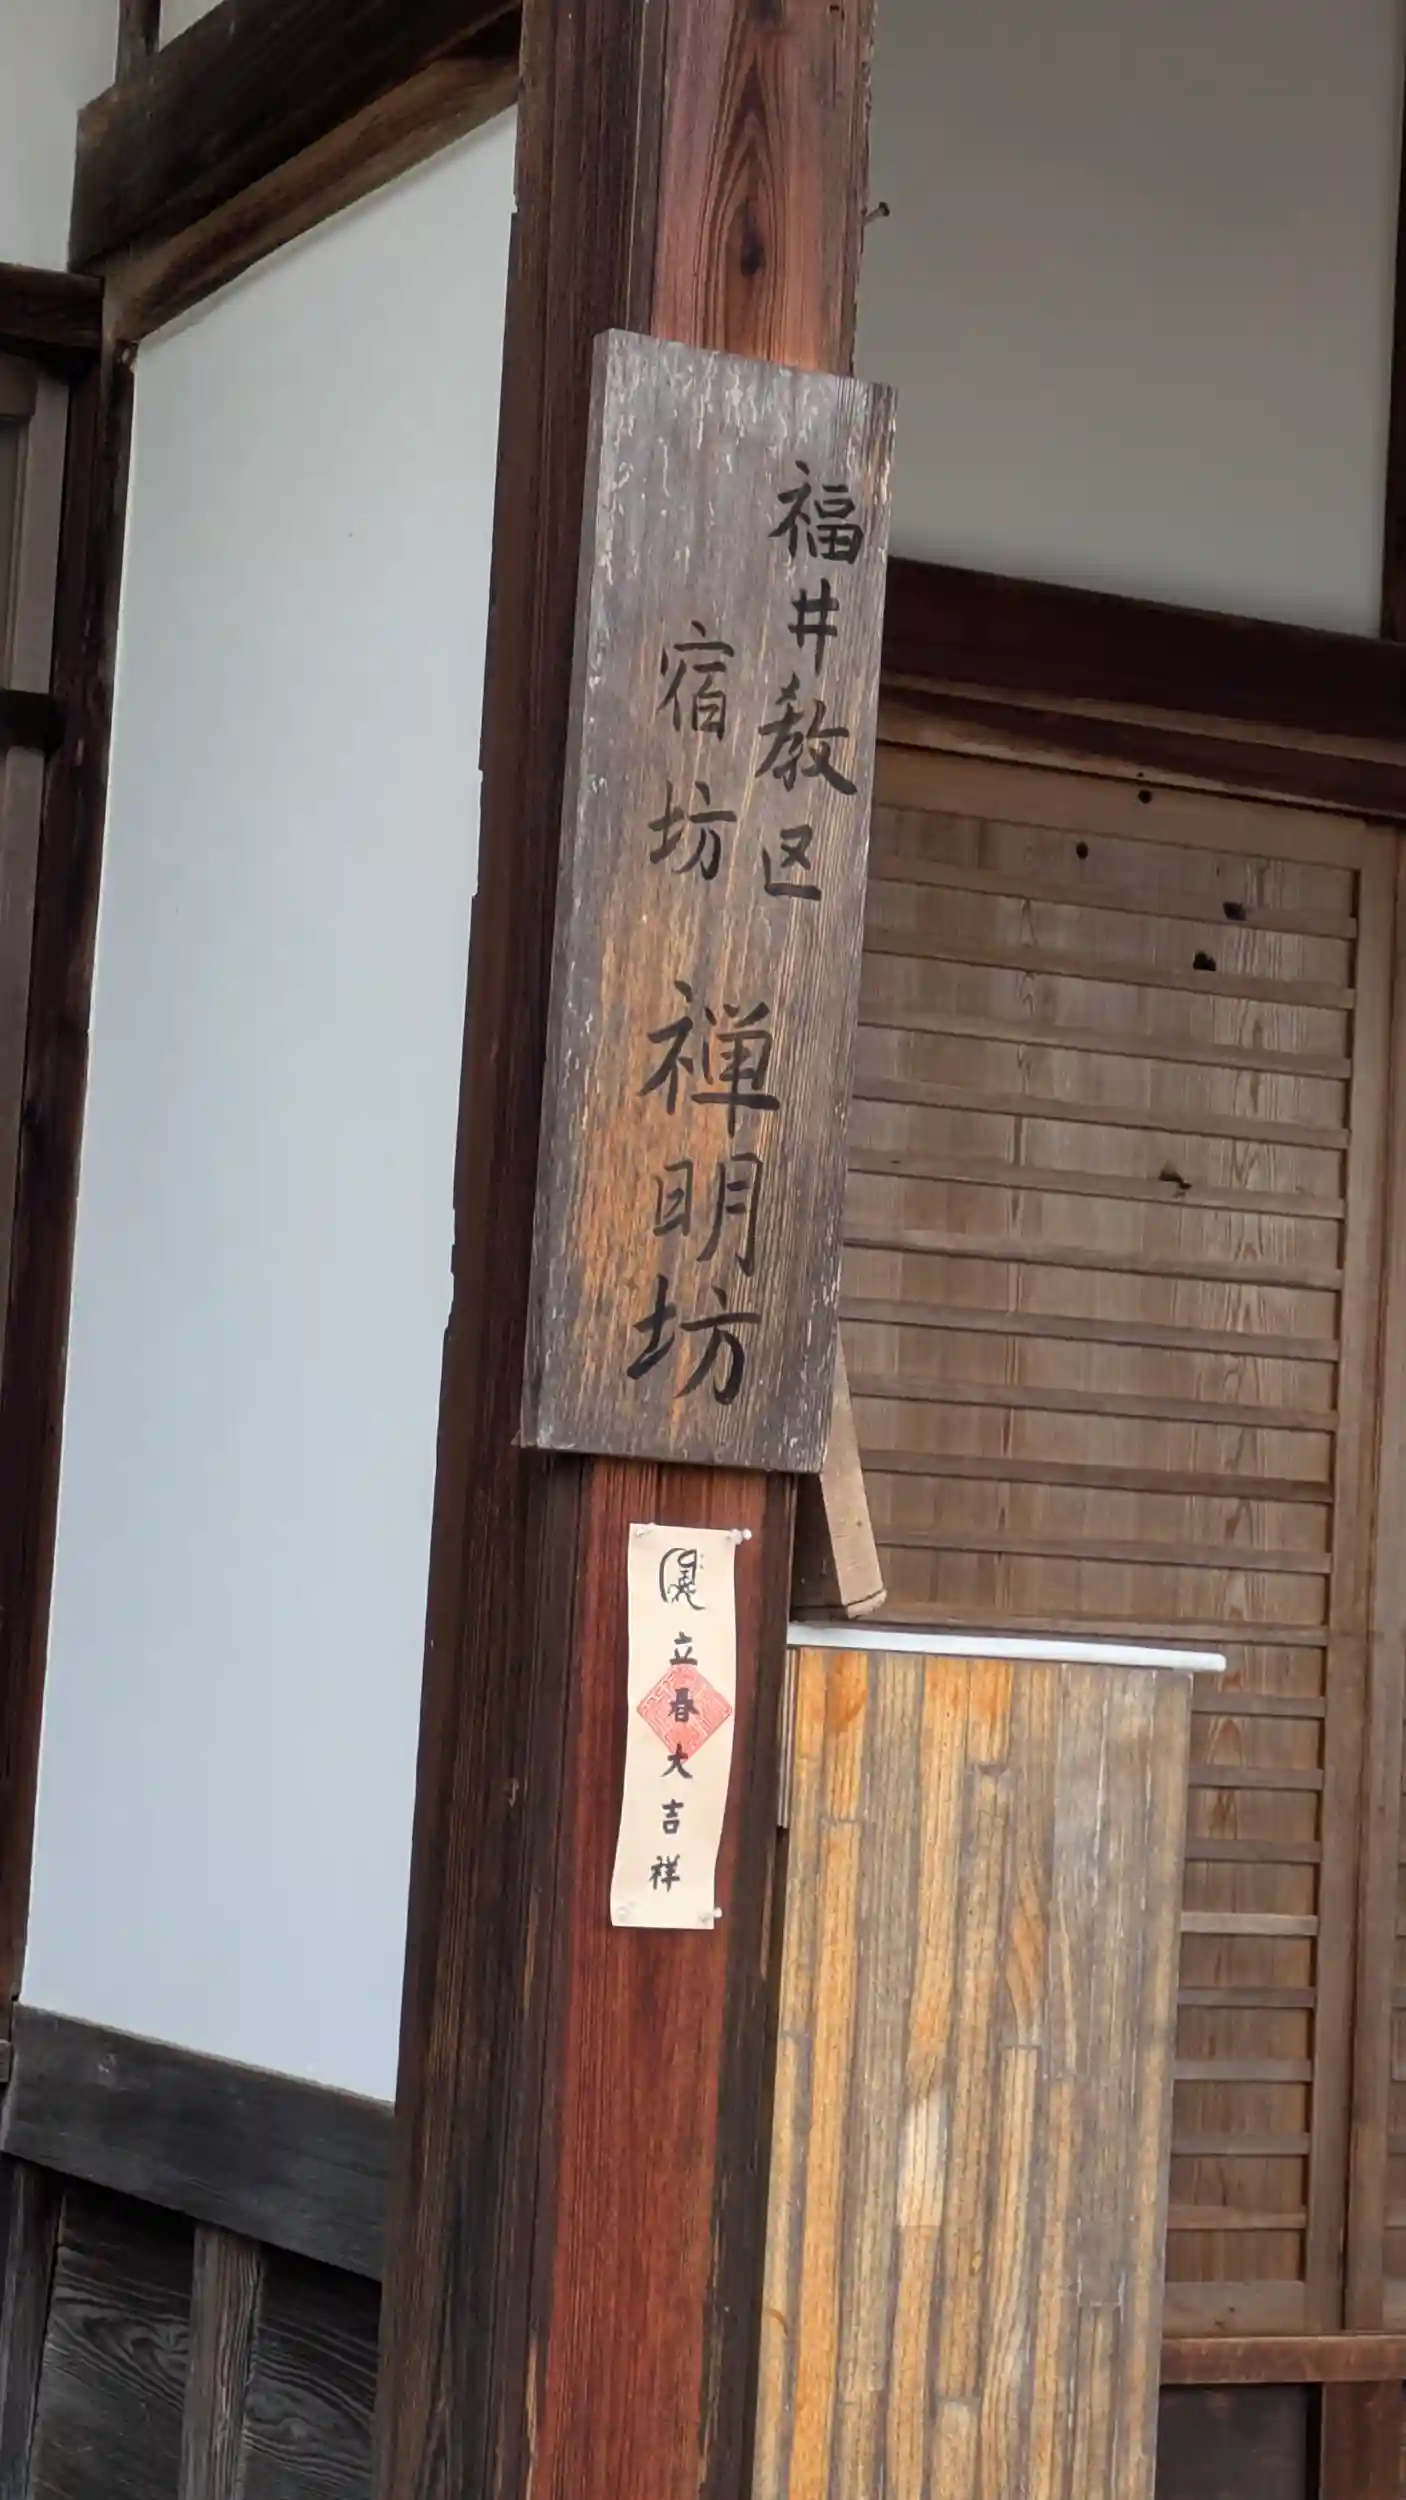 福井教区
宿坊 禅明坊
立春大吉祥